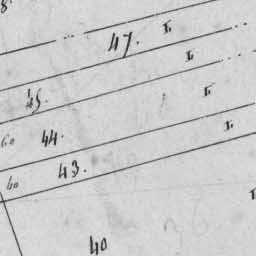 8.
47. I.
I.
45. I.
60 44. I.
40 43.
I
40